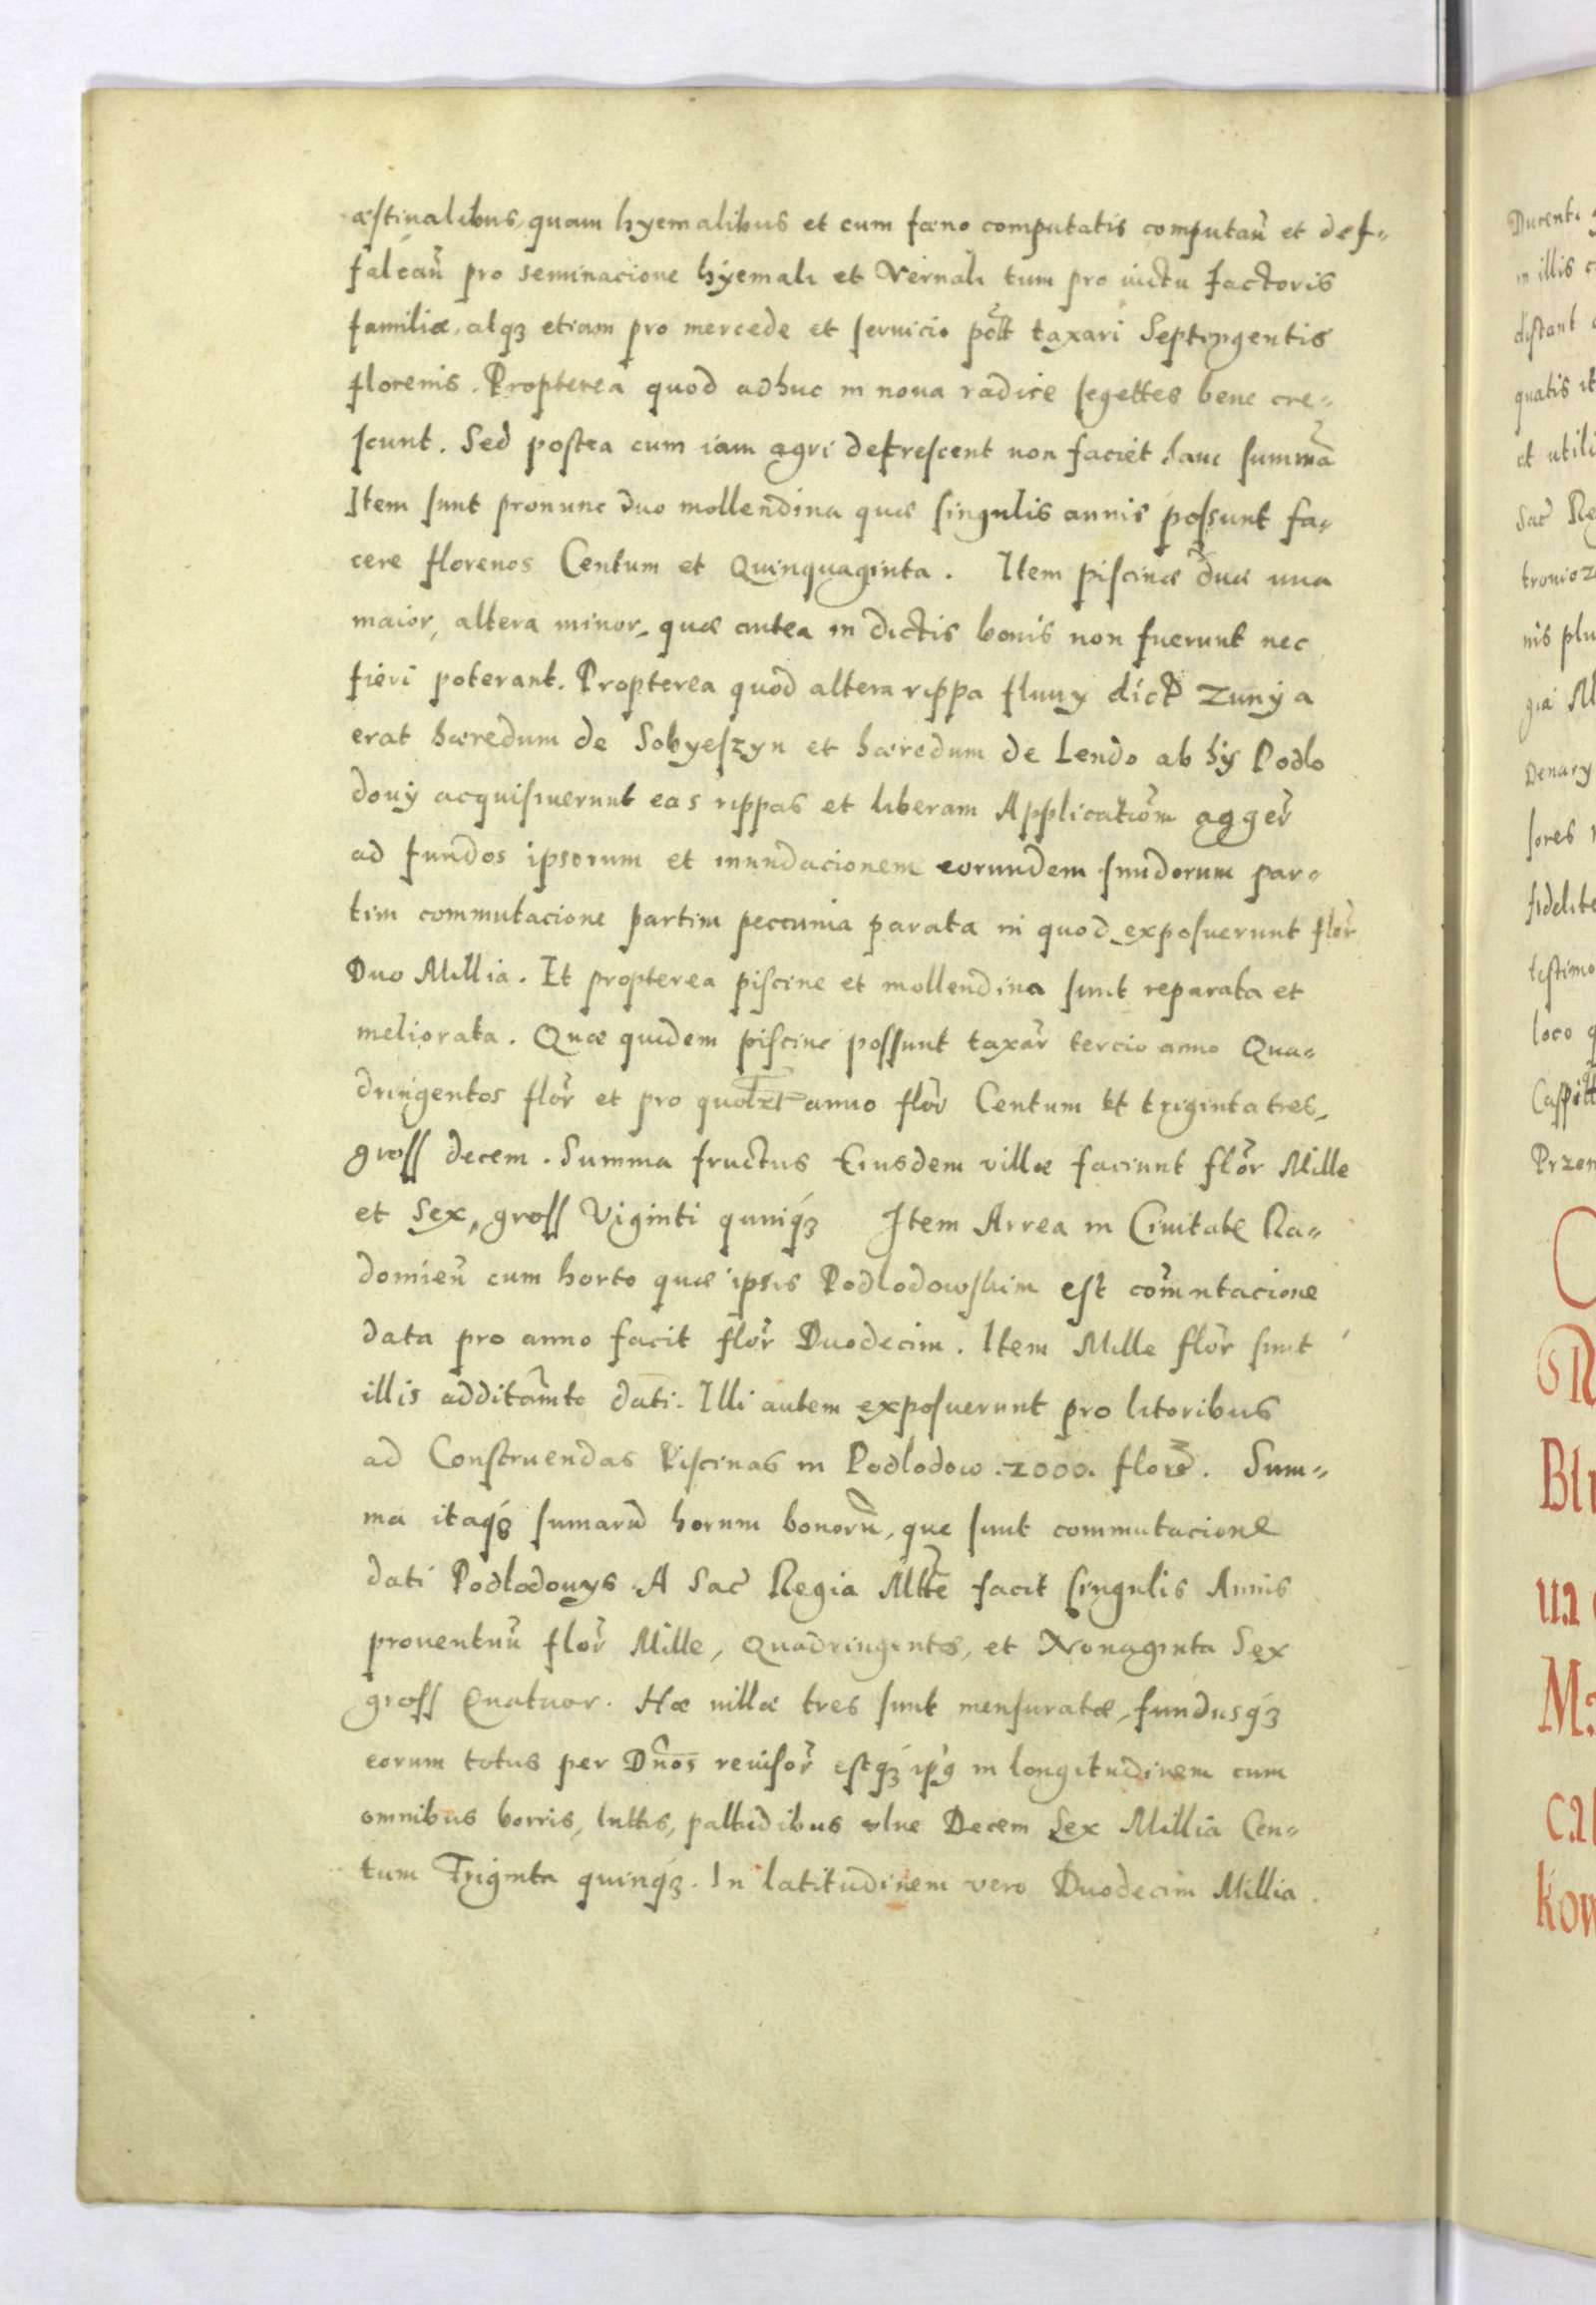 æstiualibus, quam hyemalibus et cum fœno computatis computañ et def-
falcañ pro seminacione hyemali et vernali tum pro victu factoris
familiæ, atqȝ etiam pro mercede et seruicio põtt taxari Septingentis
florenis. Propterea quod adhuc in noua radice segettes bene cre-
scunt. Sed postea cum iam agri detrescent non faciet hanc summã
Item sunt pronunc duo mollendina quæ singulis annis possunt fa-
cere florenos Centum et Quinquaginta. Item piscinæ duæ una
maior, altera minor, quæ antea in dictis bonis non fuerunt nec
fieri poterant. Propterea quod altera rippa fluuy dict Zunÿ a
erat hæredum de Sobyeszyn et hæredum de Lendo ab hÿs Podlo
douÿ acquisiuerunt eas rippas et liberam Applicatiom̃ agger̃
ad fundos ipsorum et inundacionem eorundem fundorum par-
tim commutacione partim peccunia parata in quod exposuerunt flor̃
Duo Millia. Et propterea piscine et mollendina sunt reparata et
meliorata. Quæ quidem piscine possunt taxar̃ tercio anno Qua-
dringentos flor̃ et pro quolzt anno flor̃ Centum et triginta tres,
gross decem. Summa fructus Eiusdem villæ faciunt flor̃ Mille
et Sex, gross Viginti quinqȝ Item Arrea in Ciuitate Ra-
domieñ cum horto quæ ipsis Podlodowskim est com̃utacione
data pro anno facit flor̃ Duodecim. Item Mille flor̃ sunt
illis additam̃to dati. Illi autem exposuerunt pro litoribus
ad Construendas Piscinas in Podlodow .2000. flor̃. Sum-
ma itaqȝ sumarũ horum bonorũ, que sunt commutacione
dati Podlodouys A Sac̃ Regia Mtt̃e facit singulis Annis
prouentuũ flor̃ Mille, Quadringentos, et Nonaginta Sex
gross Quatuor. Hæ villæ tres sunt mensuratæ, fundusqȝ
eorum totus per Dños reuisor̃ estqȝ ip̃ꝰ in longitudinem cum
omnibus borris, luttis, palludibus vlne Decem Sex Millia Cen-
tum Triginta quinqȝ. In latitudinem vero Duodecim Millia.